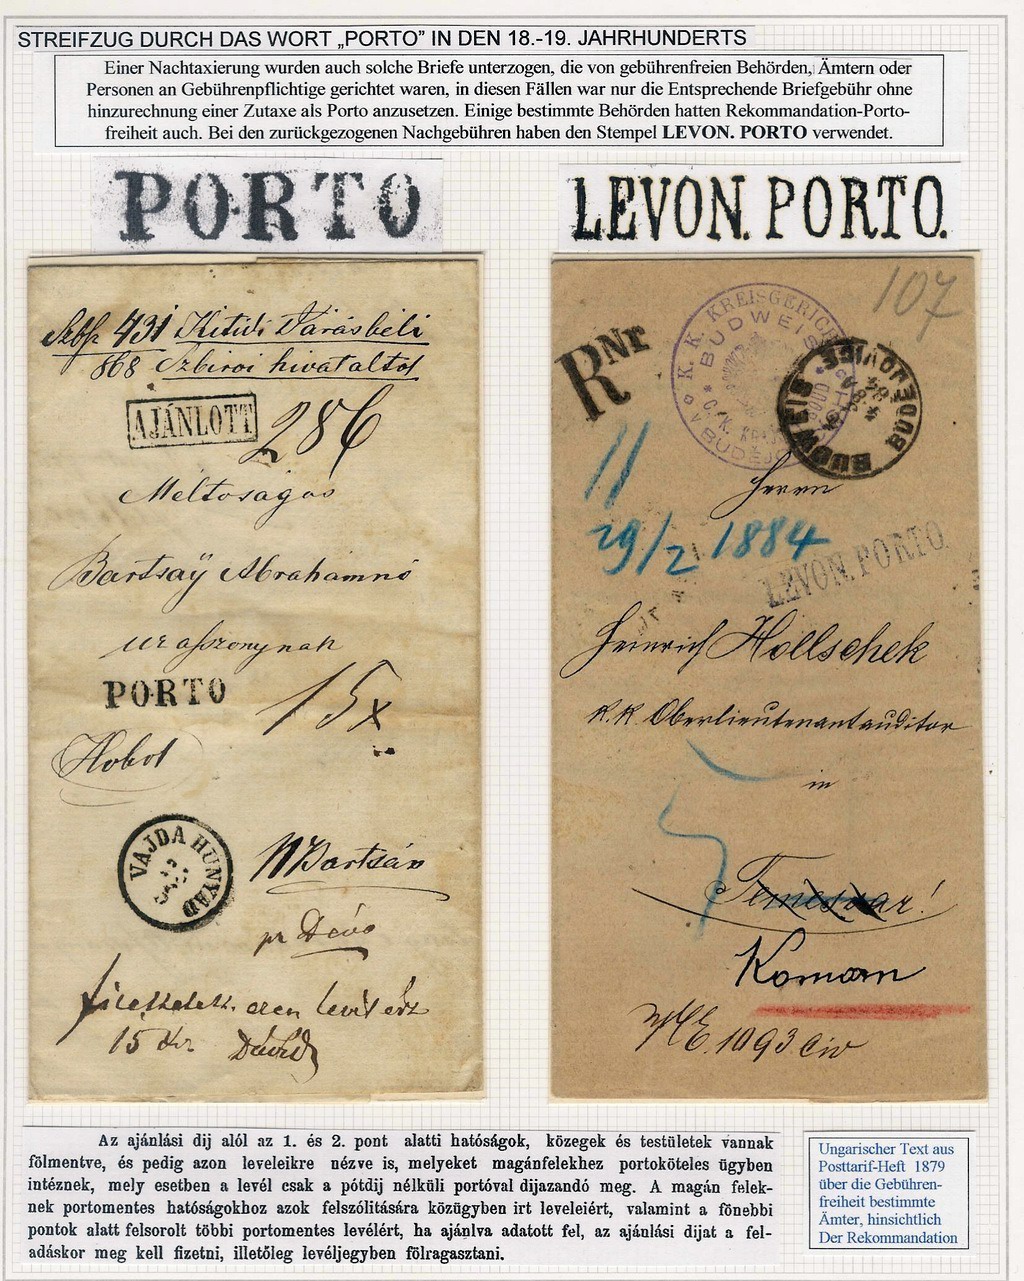 STREIFZUG DURCH DAS WORT „PORTO” IN DEN 18.-19. JAHRHUNDERTS
Einer Nachtaxierung wurden auch solche Briefe unterzogen, die von gebührenfreien Behörden, Ämtern oder
Personen an Gebührenpflichtige gerichtet waren, in diesen Fällen war nur die Entsprechende Briefgebühr ohne
hinzurechnung einer Zutaxe als Porto anzusetzen. Einige bestimmte Behörden hatten Rekommandation-Porto-
freiheit auch. Bei den zurückgezogenen Nachgebühren haben den Stempel LEVON. PORTO verwendet.
PORTO
LEVON. PORTO.
431 Kitidi Várásbéli
868 Szbirói hivataltol
AJÁNLOTT
286
Méltoságos
Bartsaÿ Abrahámnó
urasszonynak
PORTO
15x
Hobol
VAJDA HUNYAD
Bartsán
pr Déva
15 kr.
107
RNr
K. K. KREISGERICHT
BUDWEIS
BUDWEIS
BUDĚJOVICE
11
29/2 1884
Herrn
LEVON. PORTO.
Heinrich Hollschek
k. k. Oberlieutenantauditor
in
Temesvar!
Komorn
1093 civ
Az ajánlási dij alól az 1. és 2. pont alatti hatóságok, közegek és testületek vannak
fölmentve, és pedig azon leveleikre nézve is, melyeket magánfelekhez portoköteles ügyben
intéznek, mely esetben a levél csak a pótdij nélküli portóval dijazandó meg. A magán felek-
nek portomentes hatóságokhoz azok felszólitására közügyben irt leveleiért, valamint a fönebbi
pontok alatt felsorolt többi portomentes levélért, ha ajánlva adatott fel, az ajánlási dijat a fel-
adáskor meg kell fizetni, illetőleg levéljegyben fölragasztani.
Ungarischer Text aus
Posttarif-Heft 1879
über die Gebühren-
freiheit bestimmte
Ämter, hinsichtlich
Der Rekommandation